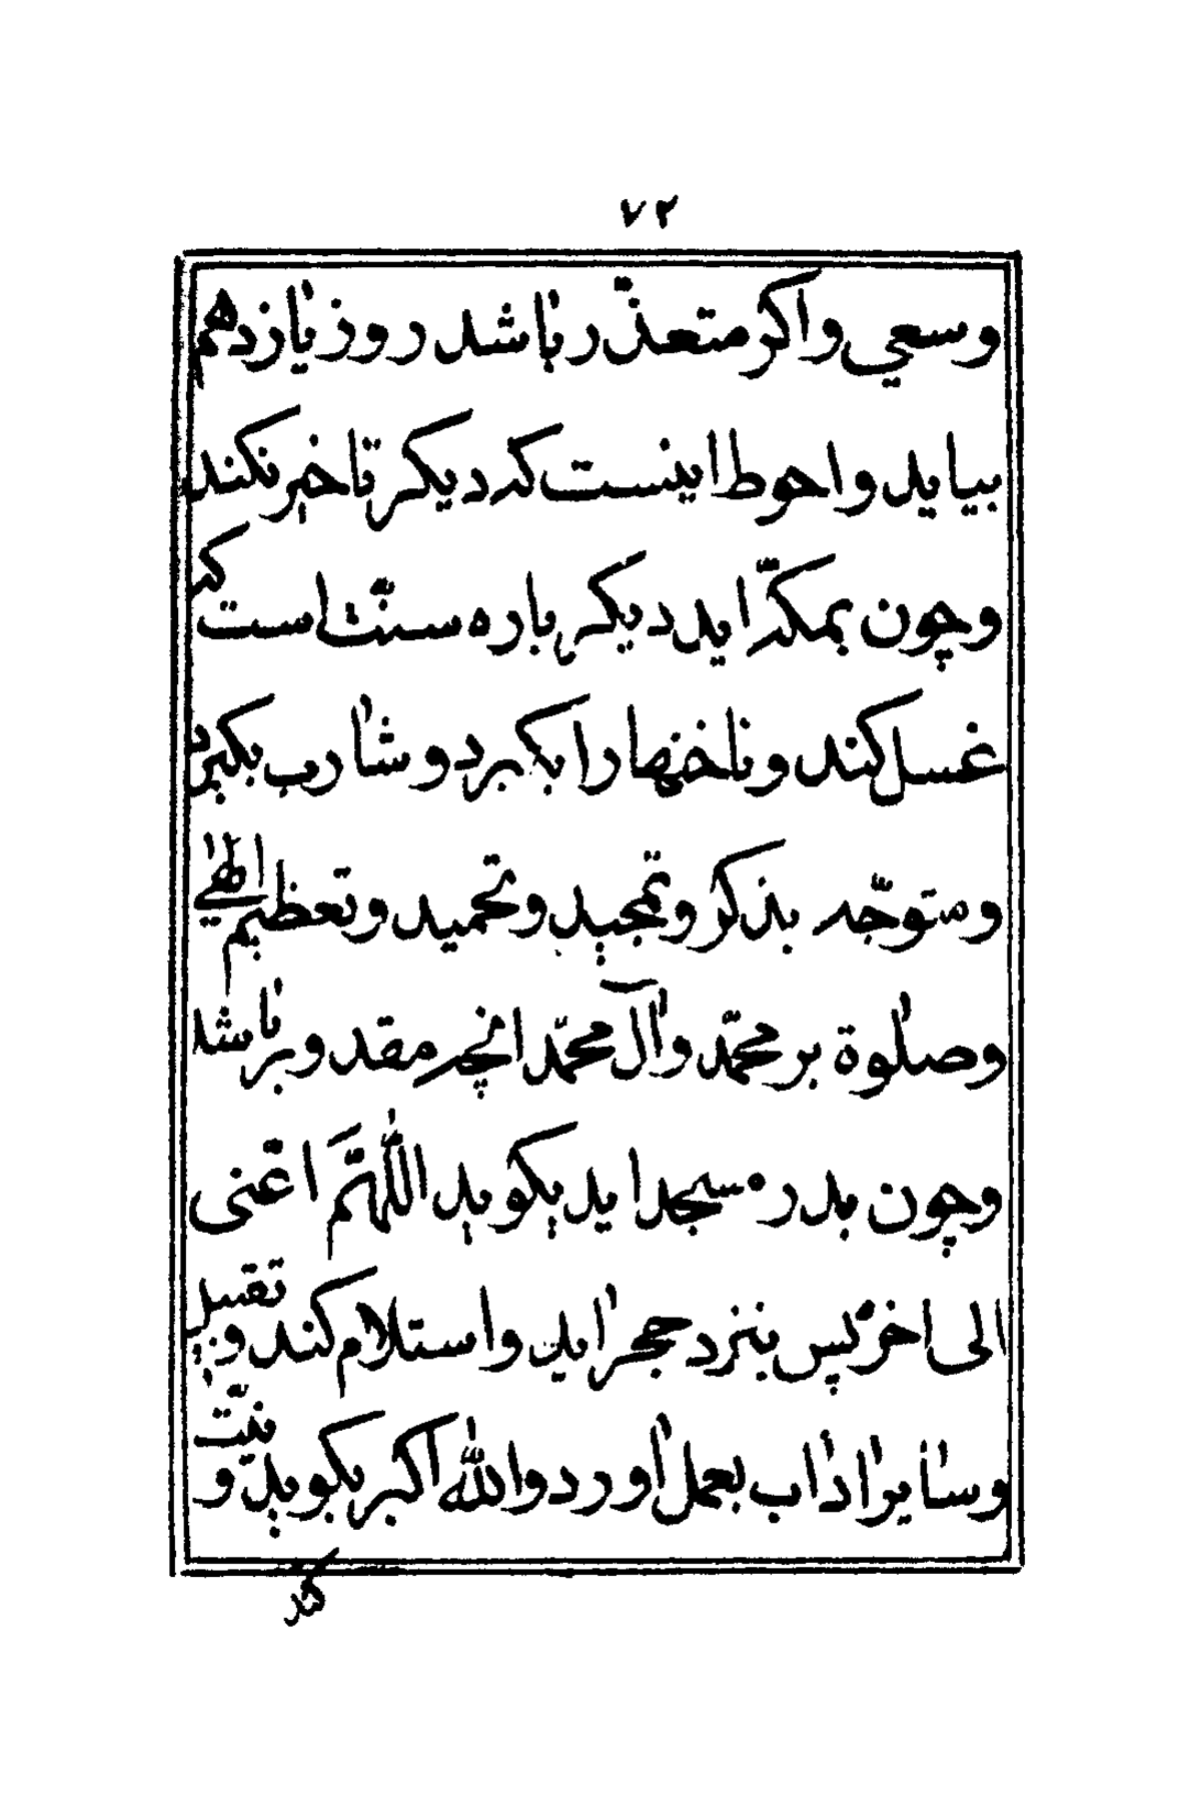 ۷۲
وسعي واکر متعذّر باشد روز یازدهم
بیاید واحوط اینست که دیکر تاخیر نکند
وچون بمکّه اید دیکر باره سنّت است که
غسل کند وناخنها را بکیرد وشارب بکیرد
ومتوجّه بذکر وتمجید وتحمید وتعظیم الهی
وصلوة بر محمّد وآل محمّد انچه مقدور باشد
وچون بدر مسجد اید بکوید اللّهمَّ اعنّی
الی اخر پس بنزد حجر اید واستلام کند وتقبیل
وسایر اداب بعمل اورد والله اکبر بکوید ونیّت
کند